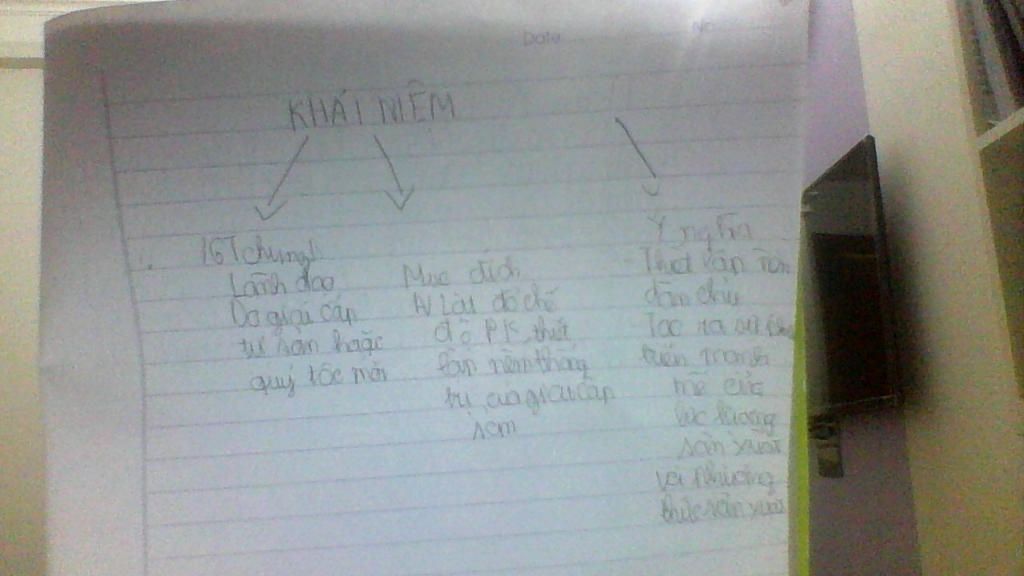 Date
No
KHÁI NIỆM
Lãnh đạo
Do giai cấp
tư sản hoặc
quý tộc mới
Mục đích
Lật đổ chế
độ PK, thiết
lập nền thống
trị của giai cấp
Ý nghĩa
Thiết lập nền
dân chủ
Tạo ra sự
triển mạnh
mẽ của
lực lượng
sản xuất
và phương
thức sản xuất